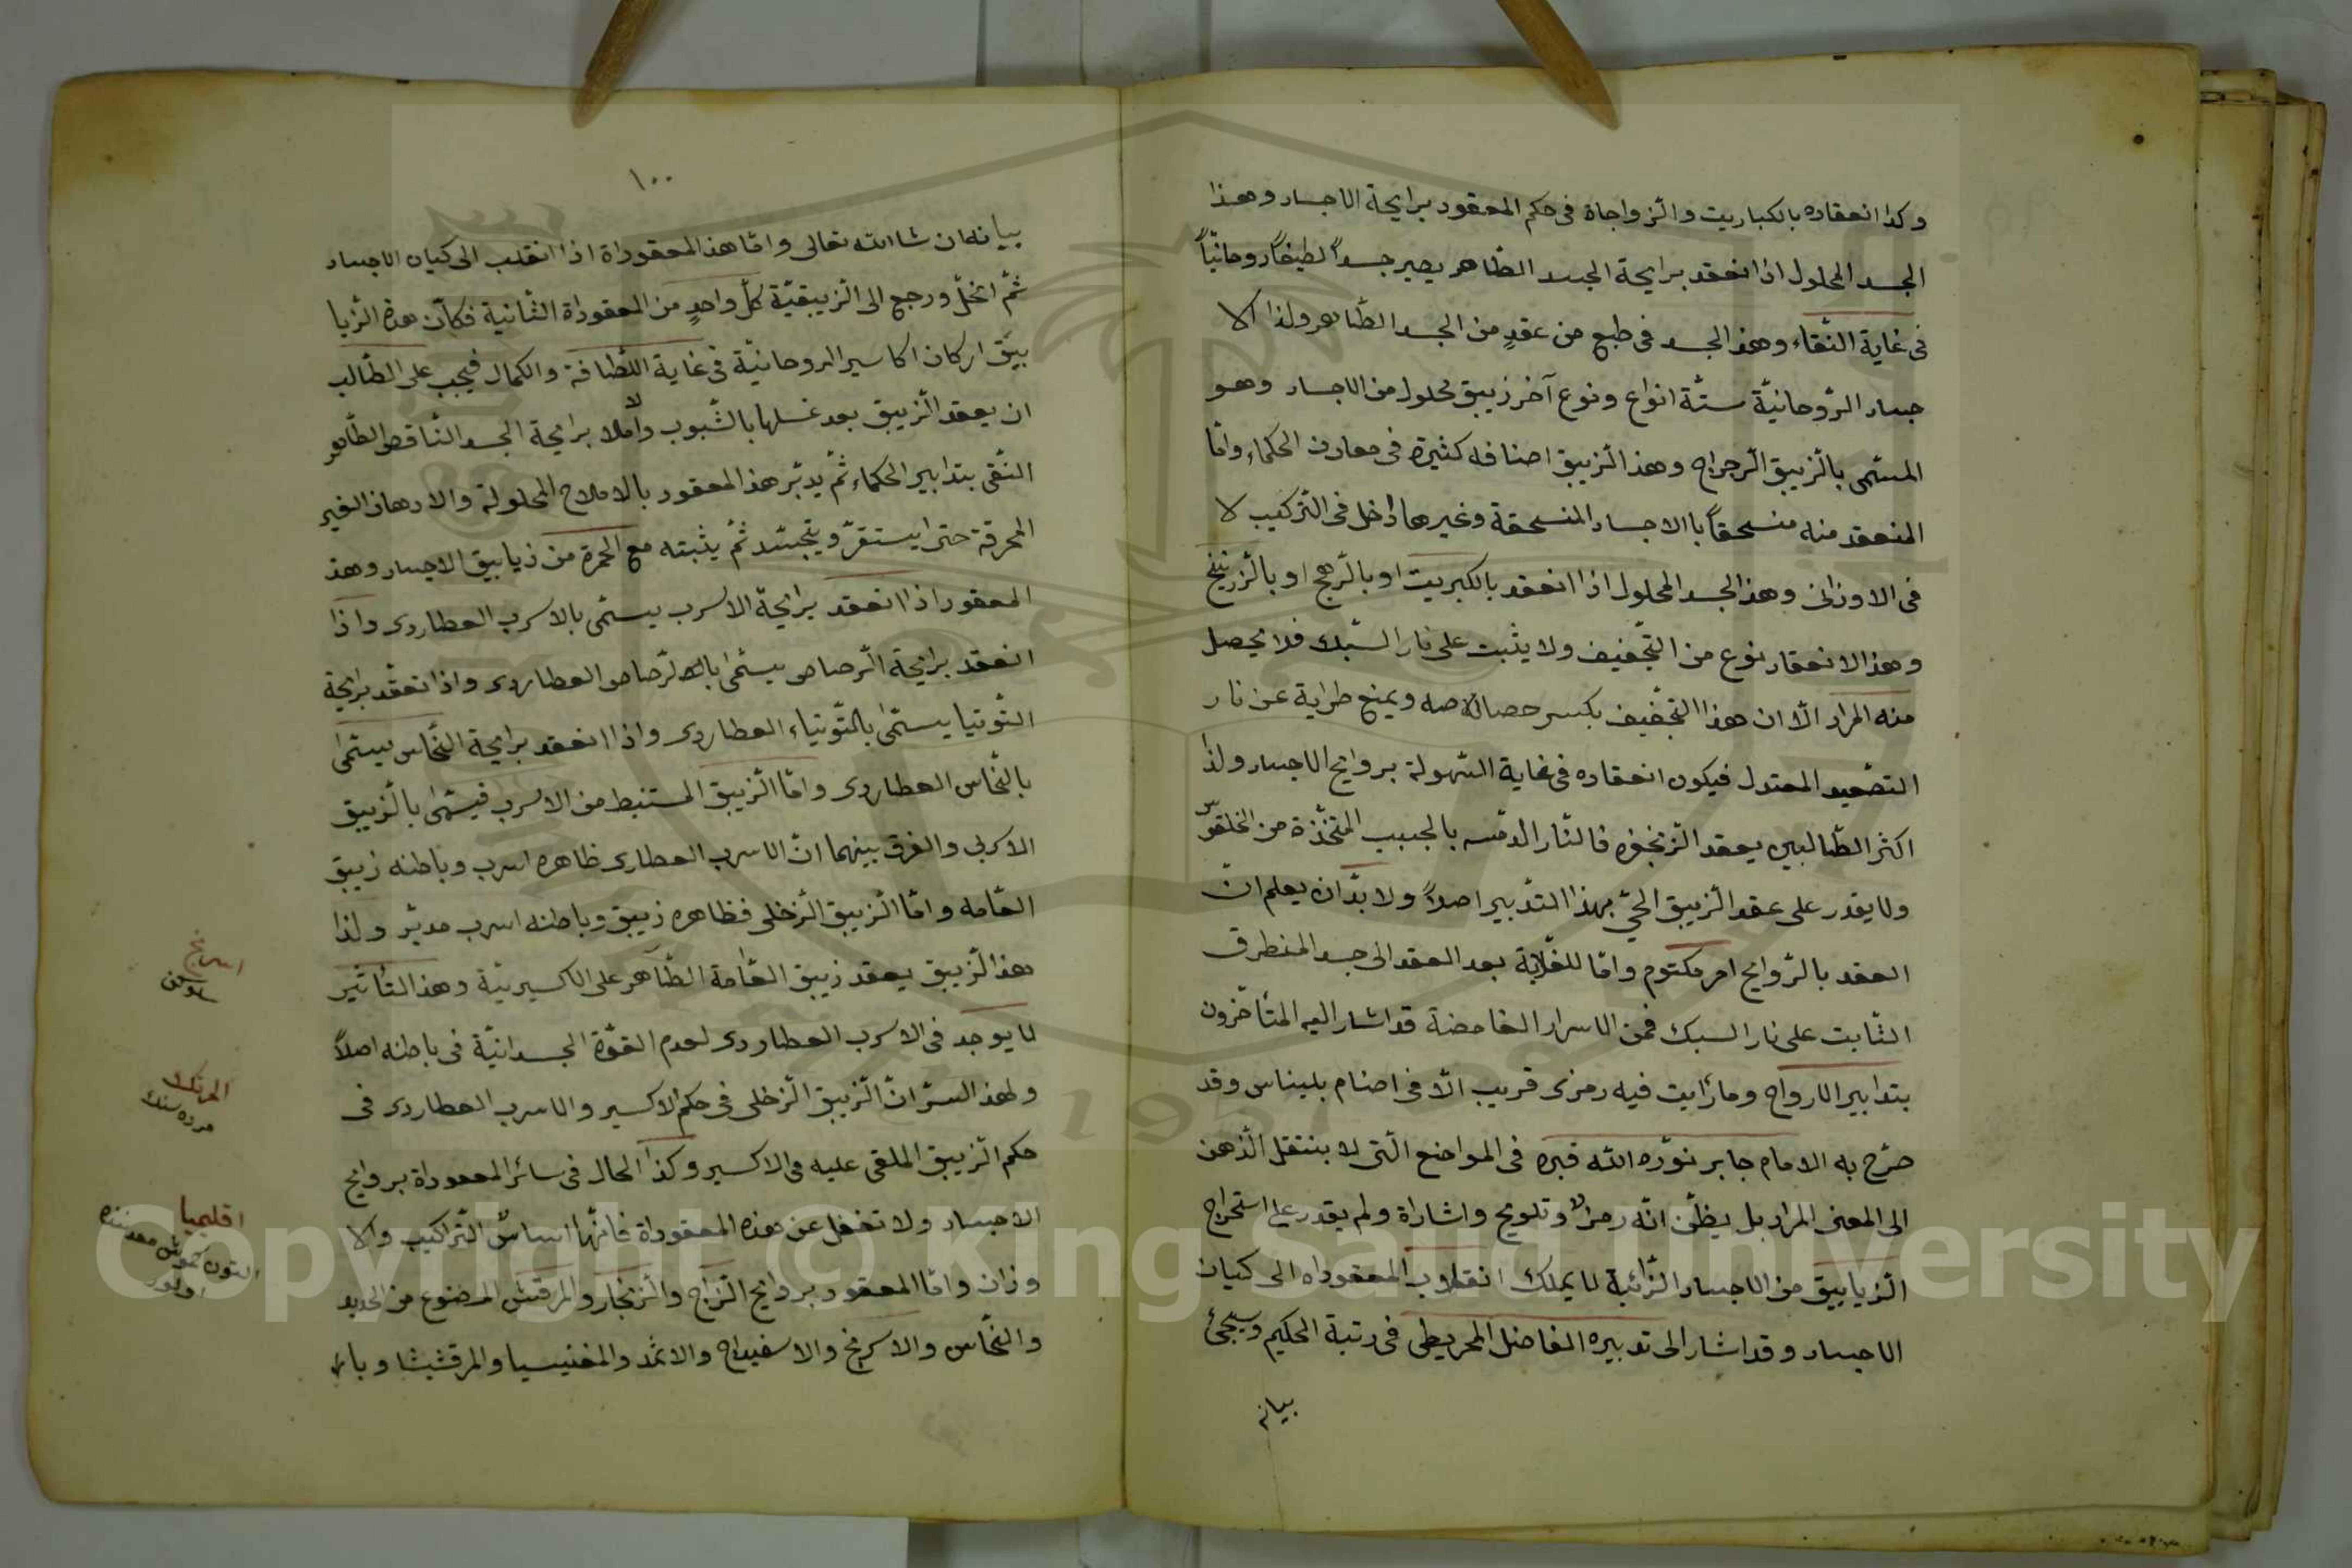 وكذا انعقاده بالكباريت والزواجاة فى حكم المعقود برايحة الاجساد وهذا
الجسد المحلول اذا انعقد برايحة الجسد الطاهر يصير جسداً لطيفاً روحانيّاً
فى غاية النّقاء وهذ الجسد فى طبع من عقدٍ من الجسد الطّاهر ولذا الا
جساد الرّوحانيّة ستّة انواع ونوع آخر زيبق محلول من الاجساد وهو
المسمّى بالزّيبق الرّجراج وهذ الزّيبق اصنافه كثيرة فى معادن الحكماء وامّا
المنعقد منه منسحقاً باالاجساد المنسحقة وغيرها داخل فى التّركيب لا
فى الاوزان وهذ الجسد المحلول اذا انعقد بالكبريت او بالرّهج او بالزّرنيخ
وهذ الانعقاد نوع من التّجفيف ولا يثبت على نار السّبك فلا يحصل
منه المراد الّا ان هذا التّجفيف بكسر ويمنع طرايه عن نار
التصعيد المعتدل فيكون انعقاده فى غاية السّهولة بروايح الاجساد ولذا
اكثر الطّالبين يعقد الزّنجفره فالنّار بالجبب المتّخذة من
ولا يقدر على عقد الزّيبق الحىّ بهذا التّدبير اصلاً ولا بدّ ان يعلم انّ
العقد بالرّوايح امر مكتوم وامّا بعد العقد الى جسد المنطرق
الثّابت على نار السبك فمن الاسرار الغامضة قد اشار اليه المتأخّرون
بتدابير الارواح وما رايت فيه رمزى قريب الّا فى اصنام بليناس وقد
صرّح به الامام جابر نوّره الله قبره فى المواضع الّتى لا ينتقل الذّهن
الى المعنى المراد بل يظنّ انّه رمزٌ وتلويح واشاراة ولم يقدر على استخراج
الزيابيق من الاجساد الذّائبة لا يملك انقلاب المعقوداه الى كيان
الاجساد وقد اشار الى تدبيره الفاضل المجريطى فى رتبة الحكيم وسيجئ
بيانه
١٠٠
بيانه ان شا الله تعالى وامّا هذ المعقوداة اذا انقلب الى كيان الاجساد
ثمّ انحلّ ورجع الى الزّيبقيّة كلّ واحدٍ من المعقوداة الثّانية فكانّ هذه الزّيا
بيق اركان اكاسير الروحانيّة فى غاية اللّطافة والكمال فيجب على الطّالب
ان يعقد الزّيبق بعد غسلها بالشّبوب واملا برايحة الجسد النّاقص الطّاهر
النّقى بتدابير الحكماء ثمّ يدبّر هذ المعقود بالاملاح المحلولة والادهان الغير
المحرقة حتى يستقرّ ويتجسّد ثمّ يثبته مع الحمرة من زيابيق الاجساد وهذ
المعقود اذا انعقد برايحة الاسرب يسمّى بالاسرب العطاردى واذا
انعقد برايحة الرّصاص يسمّى بالرّصاص العطاردى واذا نعقد برايحة
التّوتيا يسمّى بالتّوتياء العطاردى واذا انعقد برايحة النّحاس يسمّى
بالنّحاس العطاردى وامّا الزّيبق المستنبط من الاسرب فيسمّى بالزّيبق
الاسربى والفرق بينهما انّ الاسرب العطارى ظاهره اسرب وباطنه زيبق
العّامه وامّا الزّيبق الزّحلى فظاهره زيبق وباطنه اسرب مدبّر ولذا
هذ الزّيبق يعقد زيبق العّامة الطّاهر على الاكسيريّة وهذ التاثير
لا يوجد فى الاسرب العطاردى لعدم القوّة الجسدانيّة فى باطنه اصلاً
ولهذ السرّ انّ الزّيبق الزّحلى فى حكم الاكسير والاسرب العطاردى فى
حكم الزّيبق الملقى عليه الاكسير وكذا الحال فى سائر المعقوداة بروايح
الاجساد ولا تغفل عن هذه المعقوداة فانّها اساس التّراكيب والا
وزان وامّا المعقود بروايح الزّاج والزّنجار والمرقشى المصنوع من الحديد
والنّحاس والاسرنج والاسفيداج والاثمد والمغنيسيا والمرقشيثا وبا
اسرنج
المرتك
مرده سنك
اقليميا
Copyright © King Saud University
1957